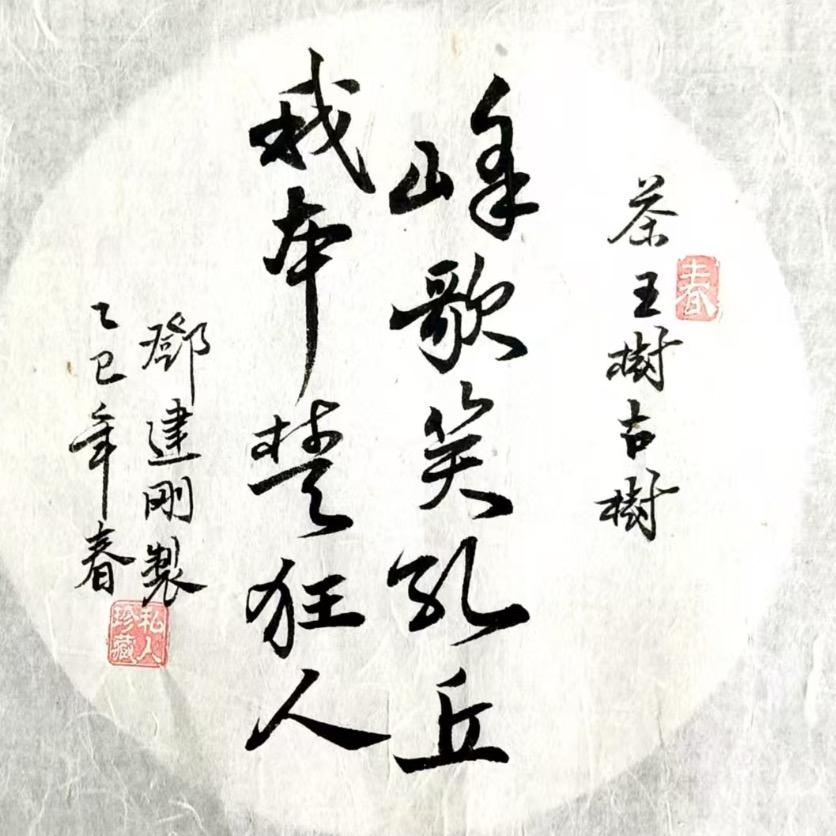 茶王樹古樹
峰歌笑孔丘
我本楚狂人
鄧建剛製
乙巳年春
私人珍藏